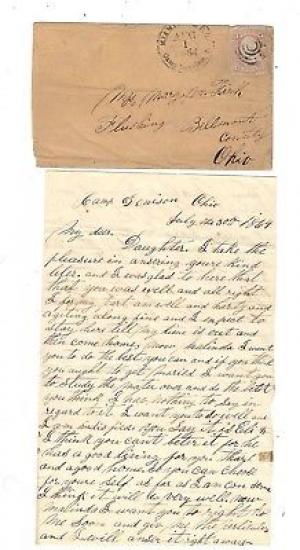 AUG
1
Kirk
Flushing Bellmont
County
Ohio
Camp Denison Ohio
July the 30th 1864
My dear
Daughter I take the
pleasure in ansering youre kind
leter and I was glad to here that
that you was well and all right
I for my part am well and harty and
giting along fine and I expect to
stay here till my time is out and
then come home now malinda I want
you to do the best you can and if you think
you ought to get maried I want you
to study the mater over and do the best
you think I has nothing to say in
regard to it I want you to do well and
I am
I think you cant beter it for he
has a good living for you thare
and a good home so you can chose
for youre self as far as I can done
I think it will be very well now
malinda I want you to right to
me soon and give me the
and I will anser it right away